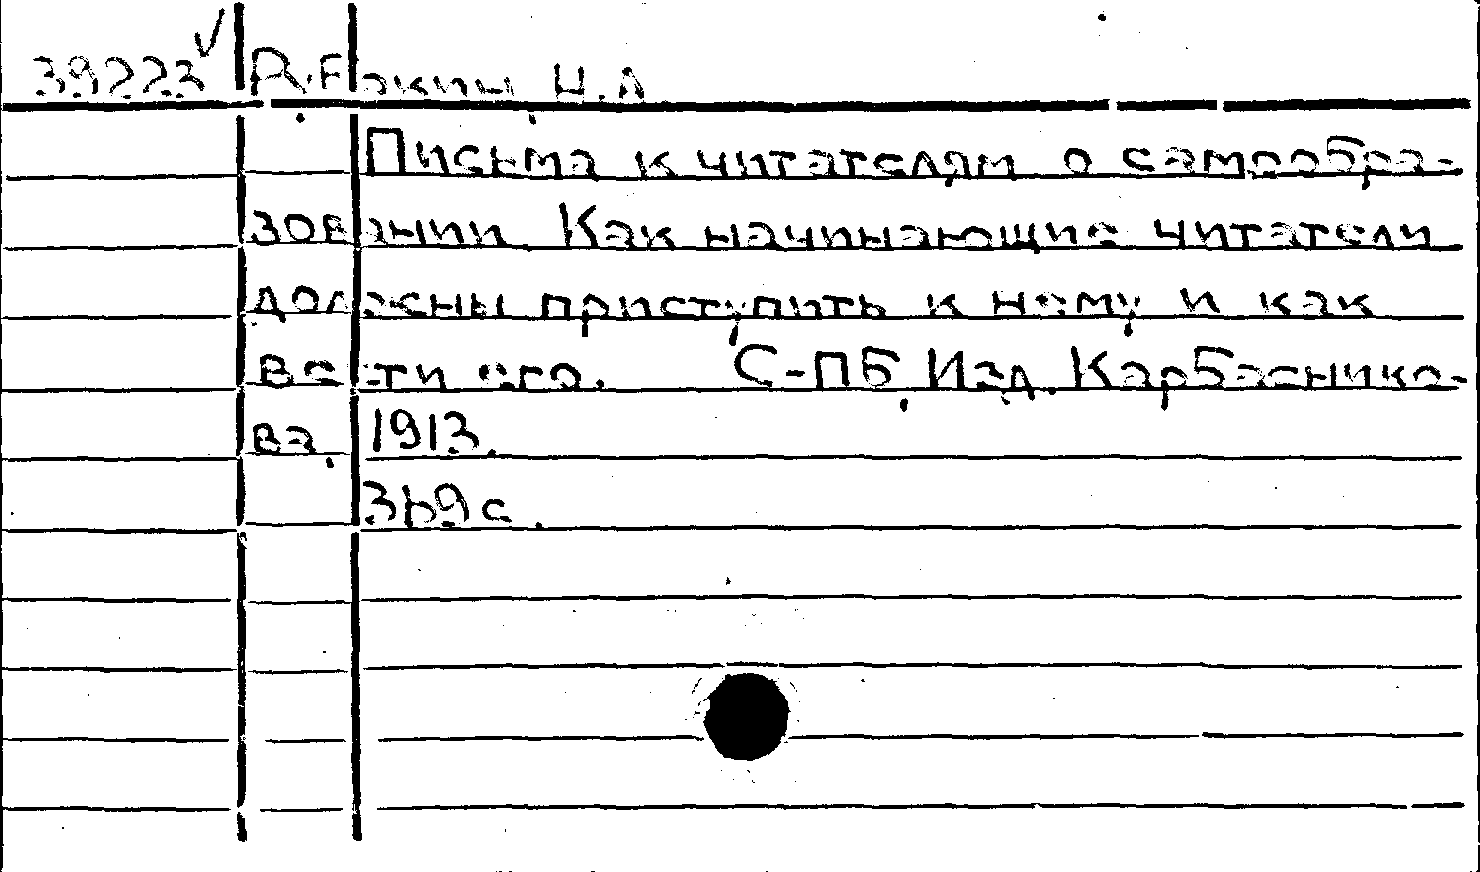 39223 Рубакин, Н.А
Письма к читателям о самообра-
зовании Как начинающие читатели
должны приступить к нему и как
вести его. С-ПБ, Изд. Карбаснико-
ва, 1913.
369с.